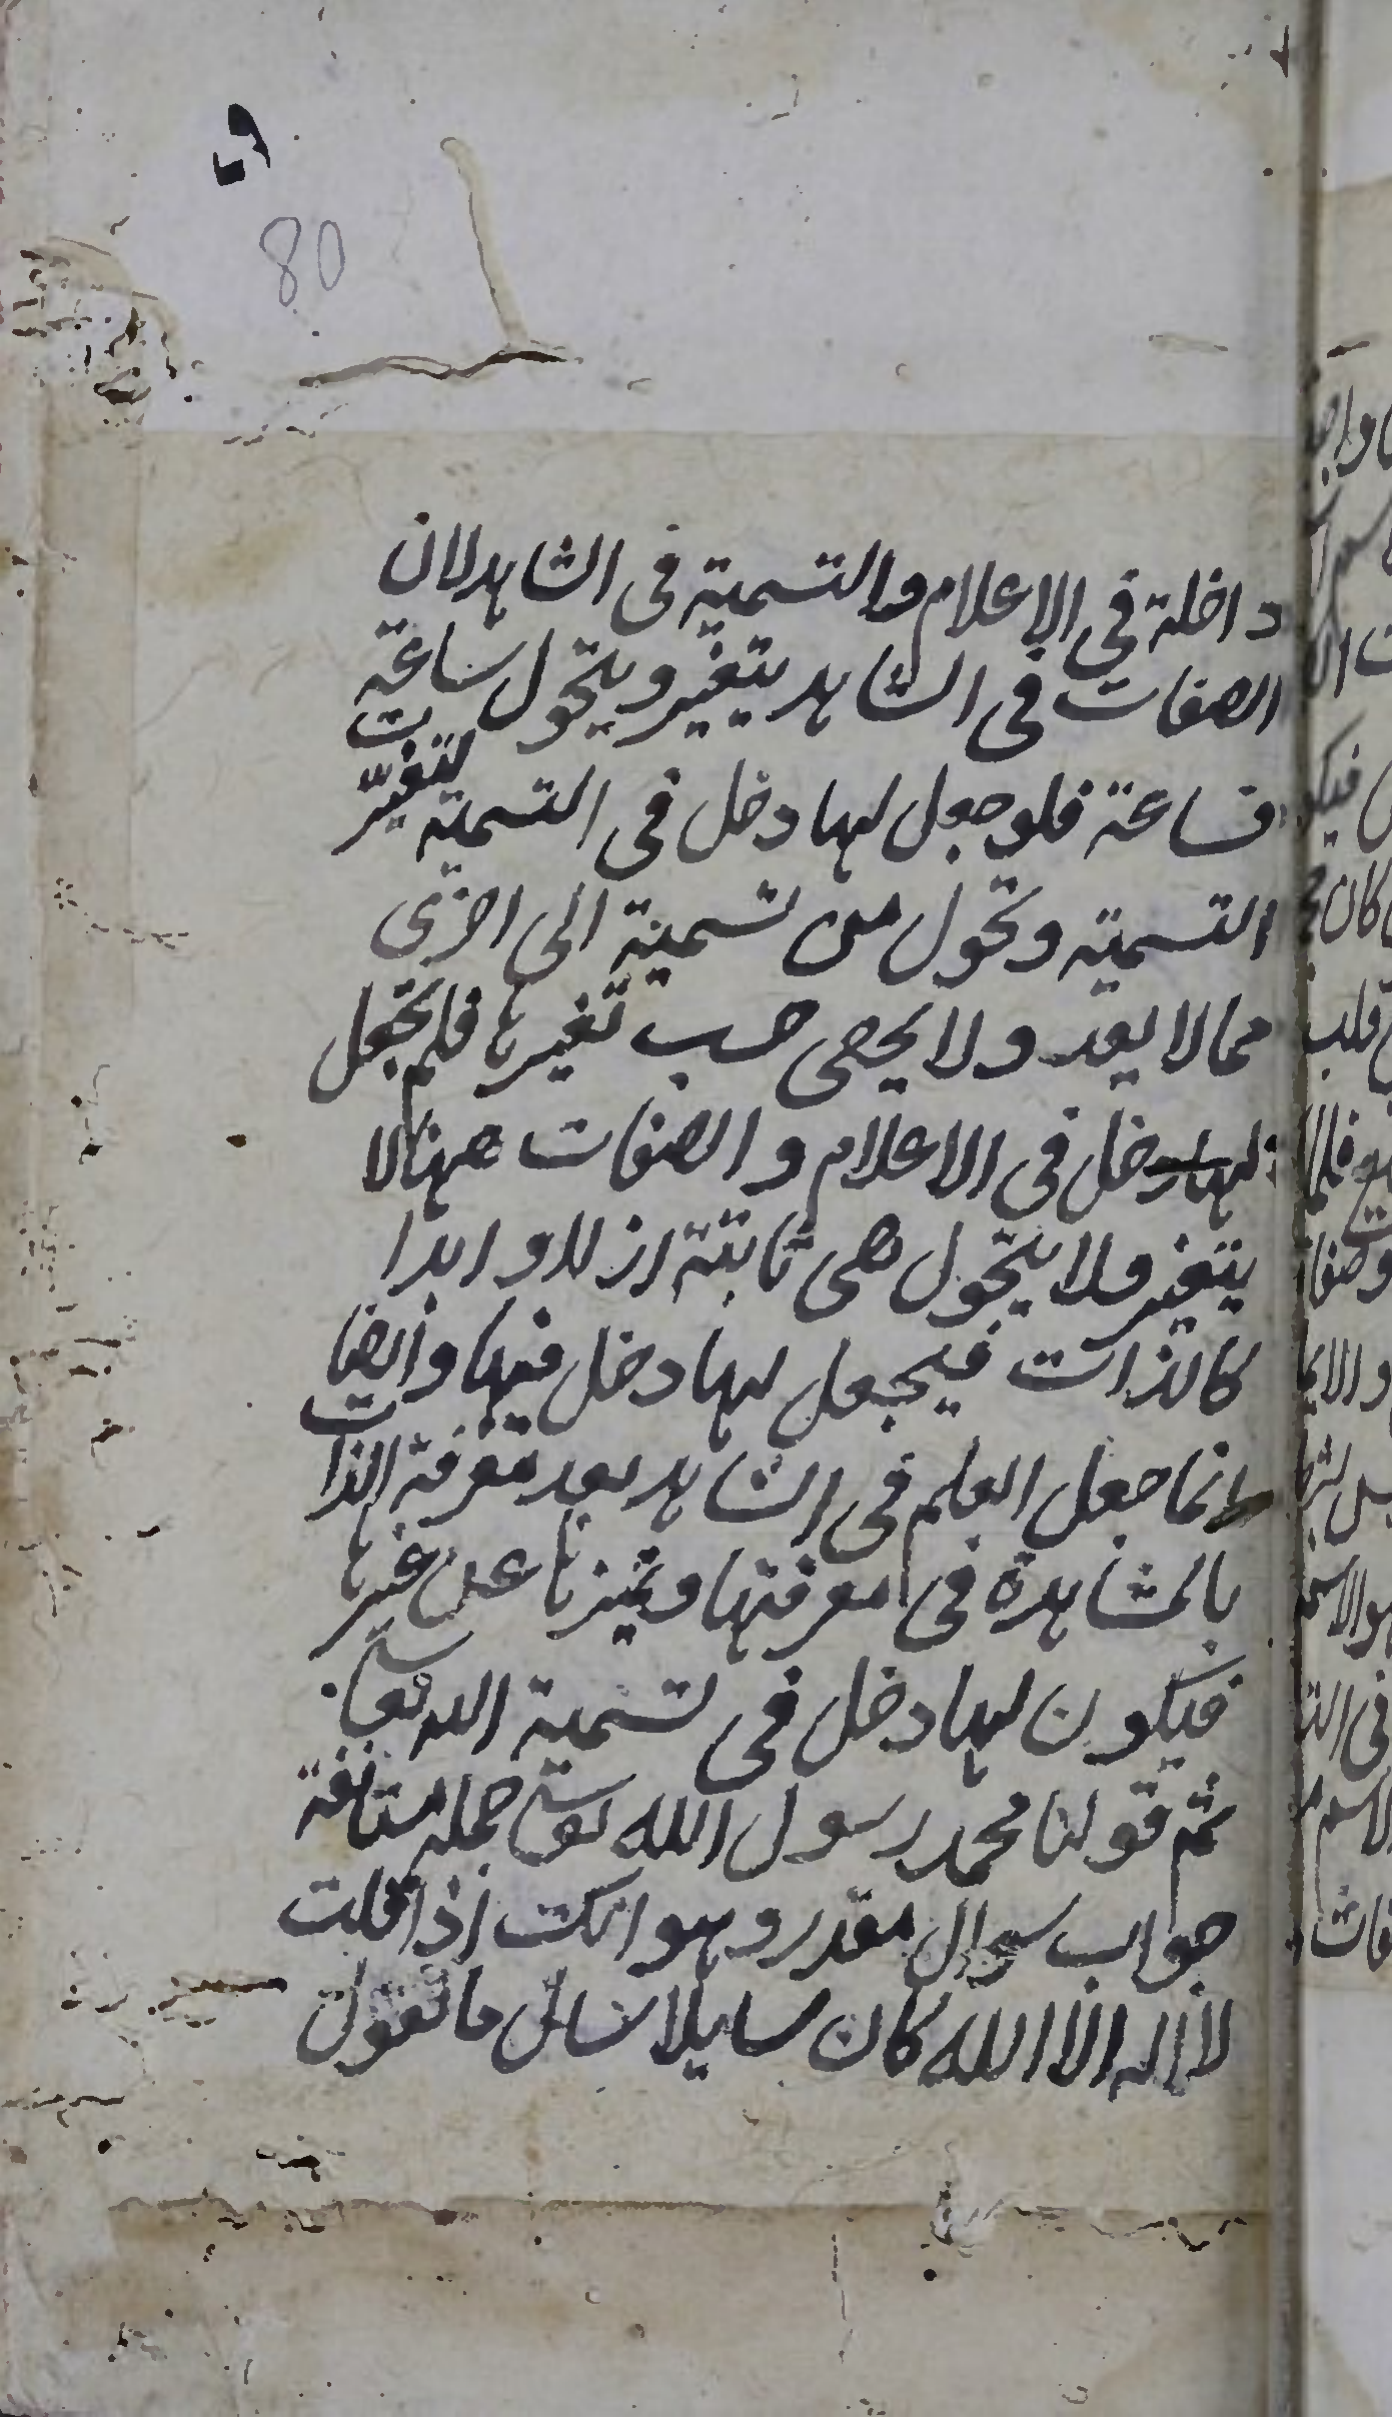 80
داخلة في الاعلام والتسمية في الشاهد لان
الصفات في الشاهد يتغير ويتحول ساعة
فساعة فلو جعل لها دخل في التسمية لتغيرت
التسمية وتحول من تسمية الى اخرى
مما لا يعد ولا يحصى حسب تغيرها فلم تجعل
لها دخل في الاعلام والصفات ههنا لا
يتغير ولا يتحول هي ثابتة ازلا وابدا
كالذات فيجعل لها دخل فيها وايضا
انما جعل العلم في الشاهد بعد معرفة الذات
بالمشاهدة في معرفتها وتميزها عن غيرها
فيكون لها دخل في تسمية الله تعا
ثم قولنا محمد رسول الله جملة مستانفة
جواب سوال مقدر وهو انك اذا قلت
لا اله الا الله كان سايلا سال ما تقول